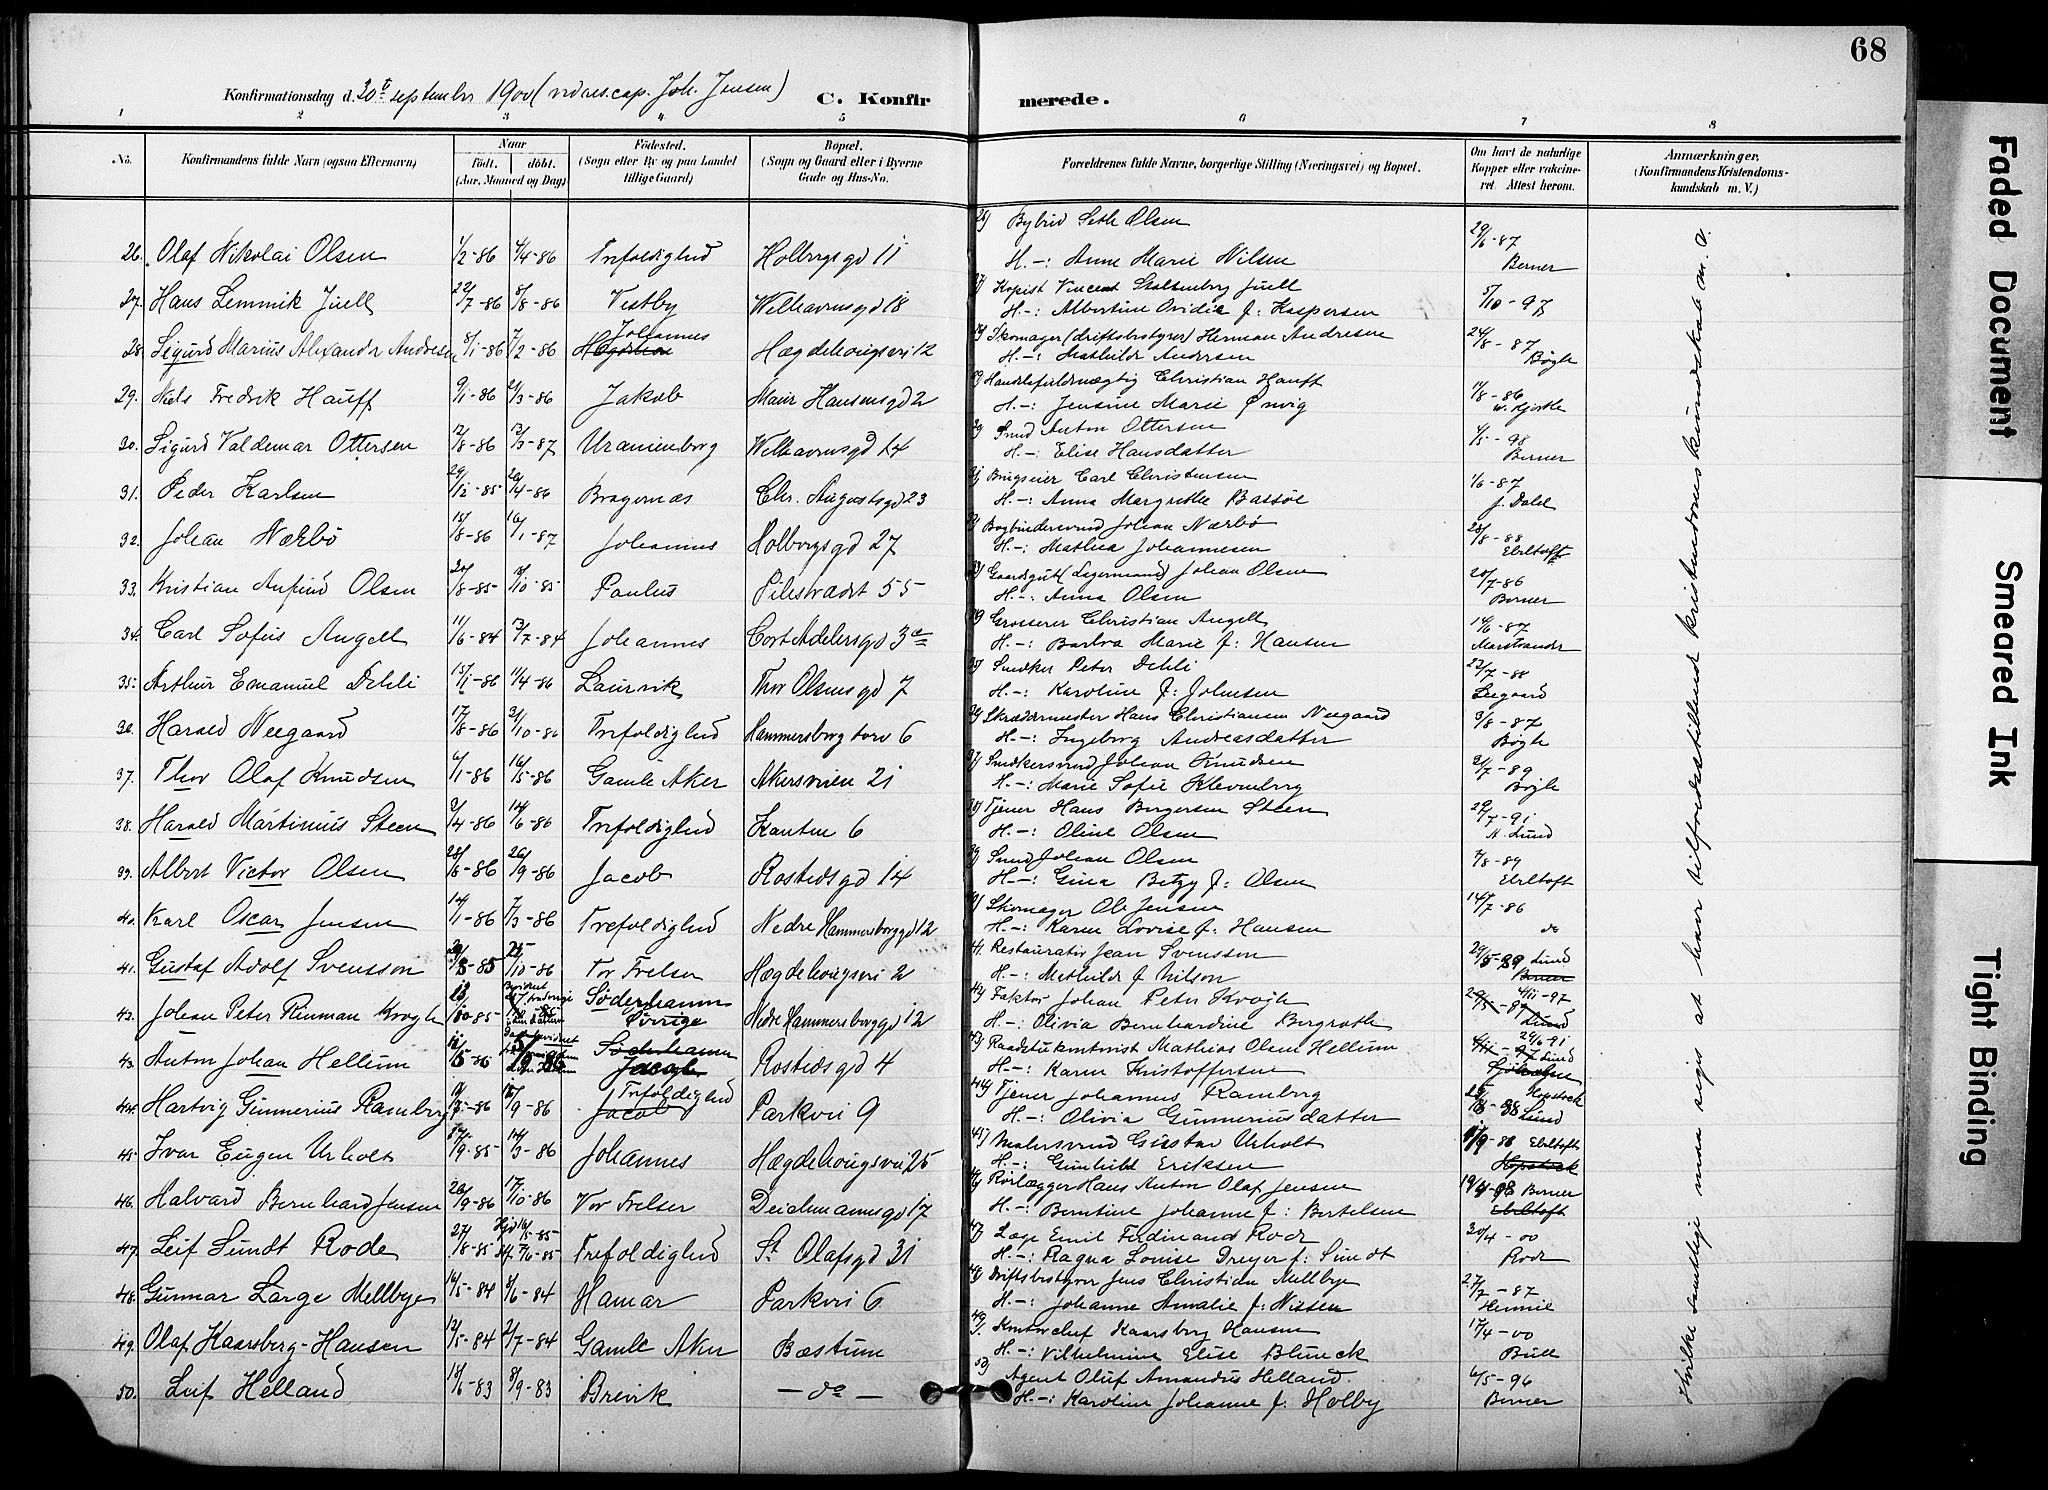 68
Konfirmationsdag d. 30te september 1900 (ved res. cap. Joh. Jensen)
C. Konfirmerede.
1 2 3 4 5 6 7 8
No. Konfirmandens fulde Navn (ogsaa Efternavn) Naar født. døbt. (Aar, Maaned og Dag) Fødested. (Sogn eller By og paa Landet tillige Gaard) Bopæl. (Sogn og Gaard eller i Byerne Gade og Hus-No. Forældrenes fulde Navne, borgerlige Stilling (Næringsvei) og Bopæl. Om havt de naturlige Kopper eller vaccineret. Attest herom. Anmærkninger. (Konfirmandens Kristendomskundskab m. V.)
26. Olaf Nikolai Olsen 1/2-86 4/4-86 Trefoldighed Holbergsgd 11 26) Bybud Seth Olsen 29/6-87
H.-: Anne Marie Nilsen Berner
27. Hans Lemmik Juell 22/7-86 8/8-86 Vestby Welhavensgd 18 27) Kopist Vincent Stoltenberg Juell 5/10-97
H.-: Albertine Ovidia f: Kaspersen
28. Sigurd Marius Alexander Andresen 5/1-86 7/2-86 Johannes Hægdehougsvei 12 28) Skomager (driftsbestyrer) Herman Andresen 24/8-87
H.-: Mathilde Andersen Bøgh
29. Niels Fredrik Hauff 9/1-86 21/3-86 Jakob Mair Hansensgd 2 29) Handelsfuldmægtig Christian Hauff 14/8-86
H.-: Jensine Marie Ønvig w. Hjorth
30. Sigurd Valdemar Ottersen 12/8-86 13/3-87 Uranienborg Welhavensgd 14 Smed Anton Ottersen 4/5-98
H.-: Elise Hansdatter Berner
31. Peder Karlsen 29/12-85 26/4-86 Bragernæs Chr. Augustsgd 23 31) Brugseier Carl Christensen 1/6-87
H.-: Anna Margrethe Bassøe J. Dahl
32. Johan Nærbø 15/8-86 16/1-87 Johannes Holbergsgd 27 Bogbindersvend Johan Nærbø 28/8-88
H.-: Mathea Johannesen Ebeltoft
33. Kristian Anfind Olsen 20/8-85 3/10-85 Paulus Pilestrædet 55 33) Gaardsgut (Lagermand) Johan Olsen 20/7-86
H.-: Anna Olsen Berner
34. Carl Sofus Angell 11/6-84 13/7-84 Johannes Cort Adelersgd 3a Grosserer Christian Angell 14/6-87
H.-: Barbra Marie f: Hansen Marstrander
35. Arthur Emanuel Dehli 15/1-86 11/4-86 Laurvik Thor Olsensgd 7 35) Snedker Peter Dehli 23/7-88
H.-: Karoline f: Johnsen Seegaard
36. Harald Neegaard 17/8-86 31/10-86 Trefoldighed Hammersborg torv 6 36) Skræddermester Hans Christiansen Neegaard 3/8-87
H.-: Ingeborg Andreasdatter Bøgh
37. Thor Olaf Knudsen 6/1-86 16/5-86 Gamle Aker Akersveien 21 37) Snedkersvend Johan Knudsen 31/7-89
H.-: Marie Sofie Klevenberg Bøgh
38. Harald Martinius Steen 2/4-86 14/6-86 Trefoldighed Kanten 6 38) Tjener Hans Bergersen Steen 29/7-91
H.-: Oline Olsen N. Lund
39. Albert Victor Olsen 28/8-86 26/9-86 Jacob Rostedsgd 14 39) Smed Johan Olsen 7/8-89
H.-: Gina Betzy f: Olsen Ebeltoft
40. Karl Oscar Jensen 14/1-86 7/3-86 Trefoldighed Nedre Hammersborggd 12 Skomager Ole Jensen 14/7-86
H.-: Karen Lovise f: Hansen do
41. Gustaf Adolf Svensson 29/3-85 25/10-86 Vor Frelser Hægdehougsvei 2 41. Restauratør Jean Svensson 29/5-89 Lund
H.-: Methilde f Nilson Berner
42. Johan Peter Rinman Krogh 13/10-85 Søderhamn Sverige Nedre Hammersborggd 12 42) Faktor Johan Peter Krogh 4/11-97
H.-: Olivia Bernhardine Bergroth Lund
43. Anton Johan Hellum 12/5-86 Søderhamn Jacob Rostedsgd 4 43) Raadstukontorist Mathias Olsen Hellum 24/6-91
H.-: Karen Kristoffersen
44. Hartvig Gunnerius Ramberg 9/7-86 12/9-86 Trefoldighed Jacob Parkvei 9 44) Tjener Johannes Ramberg
H.-: Olivia Gunneriusdatter Lund
45. Ivar Eugen Urholt 17/9-85 14/3-86 Johannes Hægdehougsvei 25 45) Malersvend Gustav Urholt 1/9-86 Ebeltoft
H.-: Gunhild Eriksen Hopstock
46. Halvard Bernhard Jensen 20/9-86 17/10-86 Vor Frelser Deichmannsgd 17 Rørlægger Hans Anton Olaf Jensen 19/4-98 Berner
H.-: Berntine Johanne f: Bertelsen Ebeltoft
47. Leif Sundt Rode 27/8-85 Hjd 16/5-85 7/6-85 Trefoldighed St. Olafsgd 31 47) Læge Emil Ferdinand Rode 30/4-00
H.-: Ragna Louise Dreyer f: Sundt Rode
48. Gunnar Lange Mellbye 16/5-84 8/6-84 Hamar Parkvei 6 48) Driftsbestyrer Jens Christian Mellbye 27/7-87
H.-: Johanne Amalie f: Nissen
49. Olaf Kaarsberg-Hansen 12/5-84 2/7-84 Gamle Aker Bæstum 49) Kontorchef Kaarsberg Hansen 17/4-00
H.-: Vilhelmine Elise Blunck Bull
50. Leif Helland 18/6-83 8/9-83 Brevik - do - 50) Agent Oluf Amandus Helland. 6/5-96
H.-: Karoline Johanne f: Holby Berner
Hvilke samtlige maa siges at have tilfredsstillende kristendomskundskab m. v.
Faded Document
Smeared Ink
Tight Binding